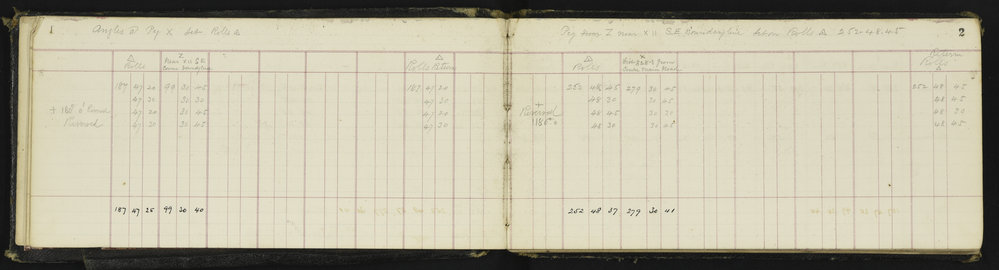 1
Angles at Peg X Set Rolls △
△
Rolls
Near XII S.E.
△
Rolls Return
187 47 20 99 30 45 187 47 20
47 30 30 30 47 30
+ 180° 0' 47 20 30 45 47 20
Reversed 47 30 30 45 47 30
187 47 25 99 30 40
2
Peg from Z near XII S.E. Boundary line Set on Rolls △ 252.48.45
△
Rolls
from
Return
Rolls
△
252 48 45 279 30 45 252 48 45
+ 48 30 30 45 48 45
Reversed 48 45 30 48 30
180° 0 48 30 30 45 48 45
252 48 37 279 30 41